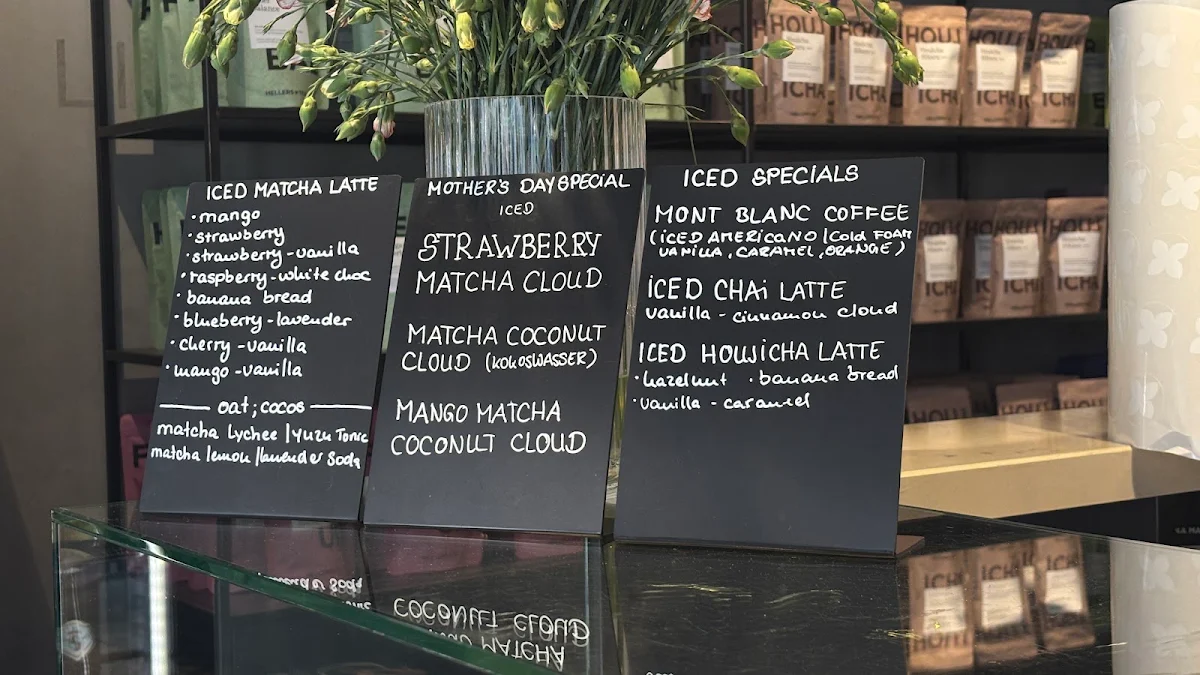 ICED MATCHA LATTE
· mango
· strawberry
· strawberry - vanilla
· raspberry - white choc
· banana bread
· blueberry - lavender
· cherry - vanilla
· mango - vanilla
oat; cocos
matcha Lychee | Yuzu Tonic
matcha lemon | lavender Soda
MOTHER'S DAY SPECIAL
ICED
STRAWBERRY
MATCHA CLOUD
MATCHA COCONUT
CLOUD (KOKOSWASSER)
MANGO MATCHA
COCONUT CLOUD
ICED SPECIALS
MONT BLANC COFFEE
(ICED AMERICANO | Cold FOAM
VANILLA, CARAMEL, ORANGE)
ICED CHAI LATTE
vanilla - cinnamon cloud
ICED HOUJICHA LATTE
· hazelnut · banana bread
· vanilla - caramel
HOUJ
ICHA